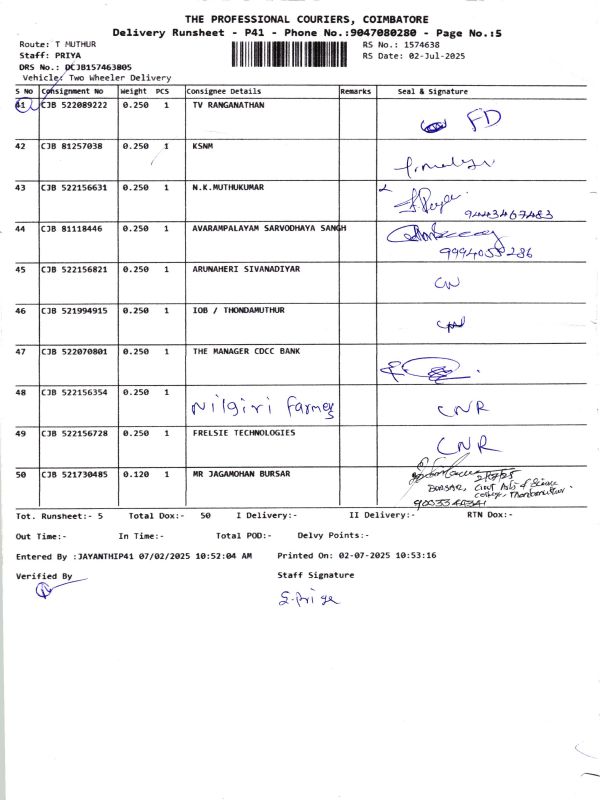 THE PROFESSIONAL COURIERS, COIMBATORE
Delivery Runsheet - P41 - Phone No.:9047080280 - Page No.:5
Route: T MUTHUR
RS No.: 1574638
Staff: PRIYA
RS Date: 02-Jul-2025
DRS No.: DCJB157463805
Vehicle: Two Wheeler Delivery
S No Consignment No Weight PCS Consignee Details Remarks Seal & Signature
41 CJB 522089222 0.250 1 TV RANGANATHAN FD
42 CJB 81257038 0.250 1 KSNM
43 CJB 522156631 0.250 1 N.K.MUTHUKUMAR
9443467483
44 CJB 81118446 0.250 1 AVARAMPALAYAM SARVODHAYA SANGH
9994055286
45 CJB 522156821 0.250 1 ARUNAHERI SIVANADIYAR
46 CJB 521994915 0.250 1 IOB / THONDAMUTHUR
47 CJB 522070801 0.250 1 THE MANAGER CDCC BANK
48 CJB 522156354 0.250 1 Nilgiri Farmers CNR
49 CJB 522156728 0.250 1 FRELSIE TECHNOLOGIES CNR
50 CJB 521730485 0.120 1 MR JAGAMOHAN BURSAR
BURSAR, Govt Arts & Science
College, Thondamuthur.
Tot. Runsheet:- 5 Total Dox:- 50 I Delivery:- II Delivery:- RTN Dox:-
Out Time:- In Time:- Total POD:- Delvy Points:-
Entered By :JAYANTHIP41 07/02/2025 10:52:04 AM Printed On: 02-07-2025 10:53:16
Verified By Staff Signature
S. Priya